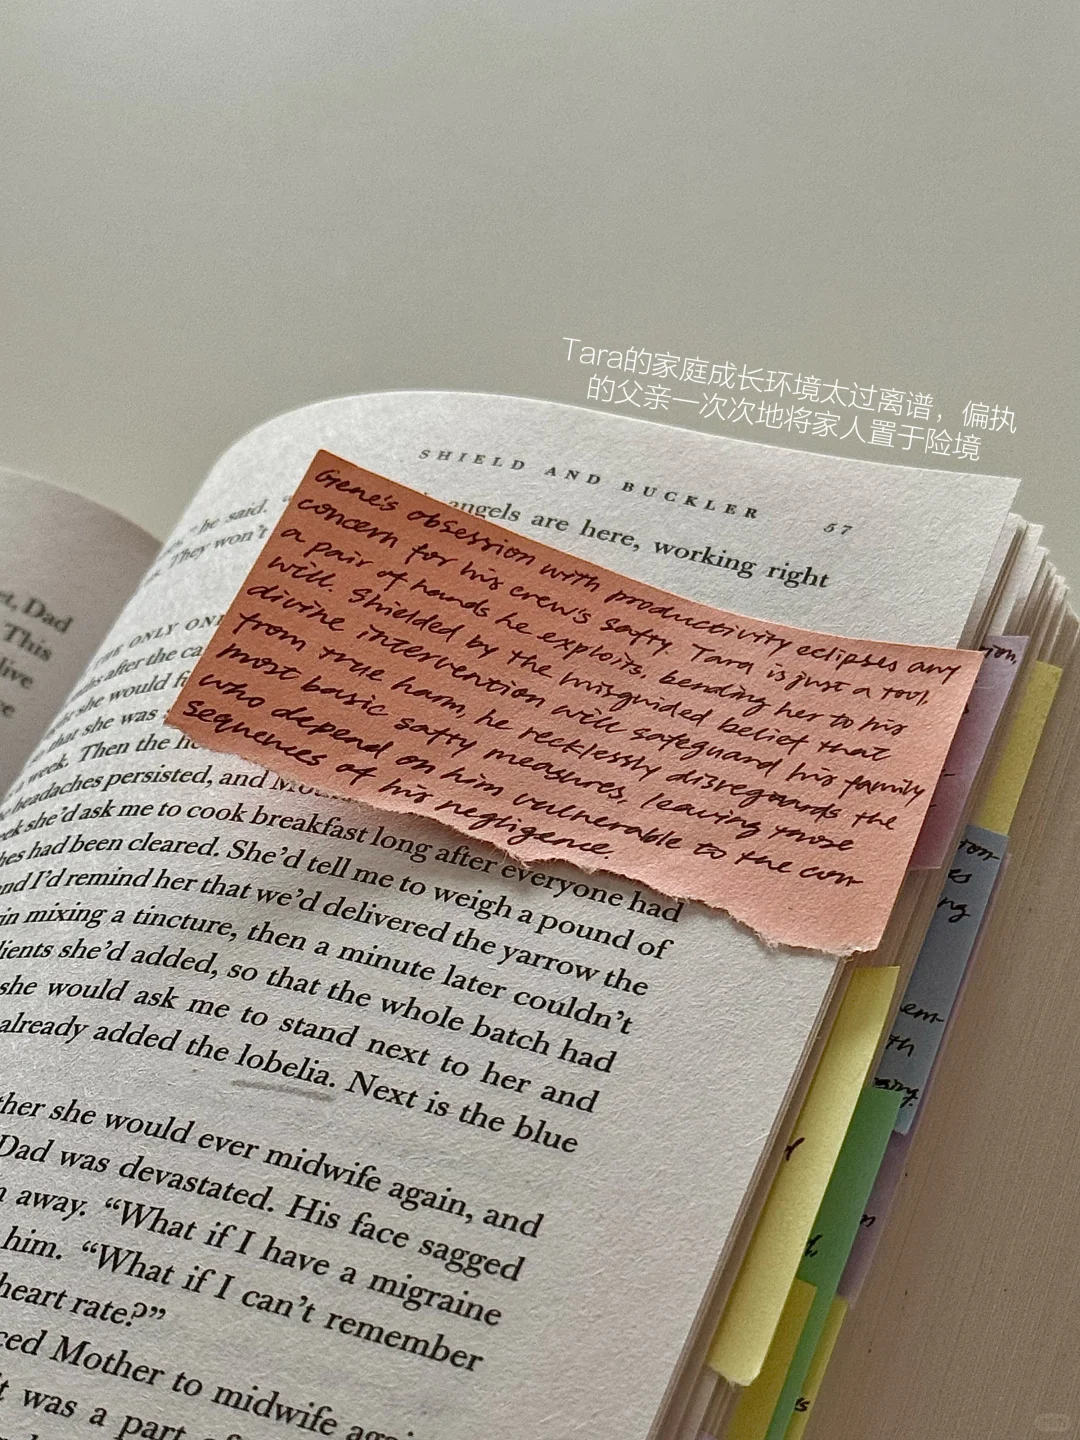 Tara的家庭成长环境太过离谱，偏执
的父亲一次次地将家人置于险境
SHIELD AND BUCKLER 57
angels are here, working right
he said.
They won't
Gene's obsession with productivity eclipses any
concern for his crew's safty. Tara is just a tool,
a pair of hands he exploits, bending her to his
will. Shielded by the misguided belief that
divine intervention will safeguard his family
from true harm, he recklessly disregards the
most basic safty measures, leaving those
who depend on him vulnerable to the con-
sequences of his negligence.
THE ONLY
after the
she would
that she was
week. Then the
headaches persisted, and
she'd ask me to cook breakfast long after everyone had
had been cleared. She'd tell me to weigh a pound of
and I'd remind her that we'd delivered the yarrow the
mixing a tincture, then a minute later couldn't
she'd added, so that the whole batch had
she would ask me to stand next to her and
already added the lobelia. Next is the blue
she would ever midwife again, and
Dad was devastated. His face sagged
away. “What if I have a migraine
him. “What if I can't remember
heart rate?”
Mother to midwife
was a part
Dad
This